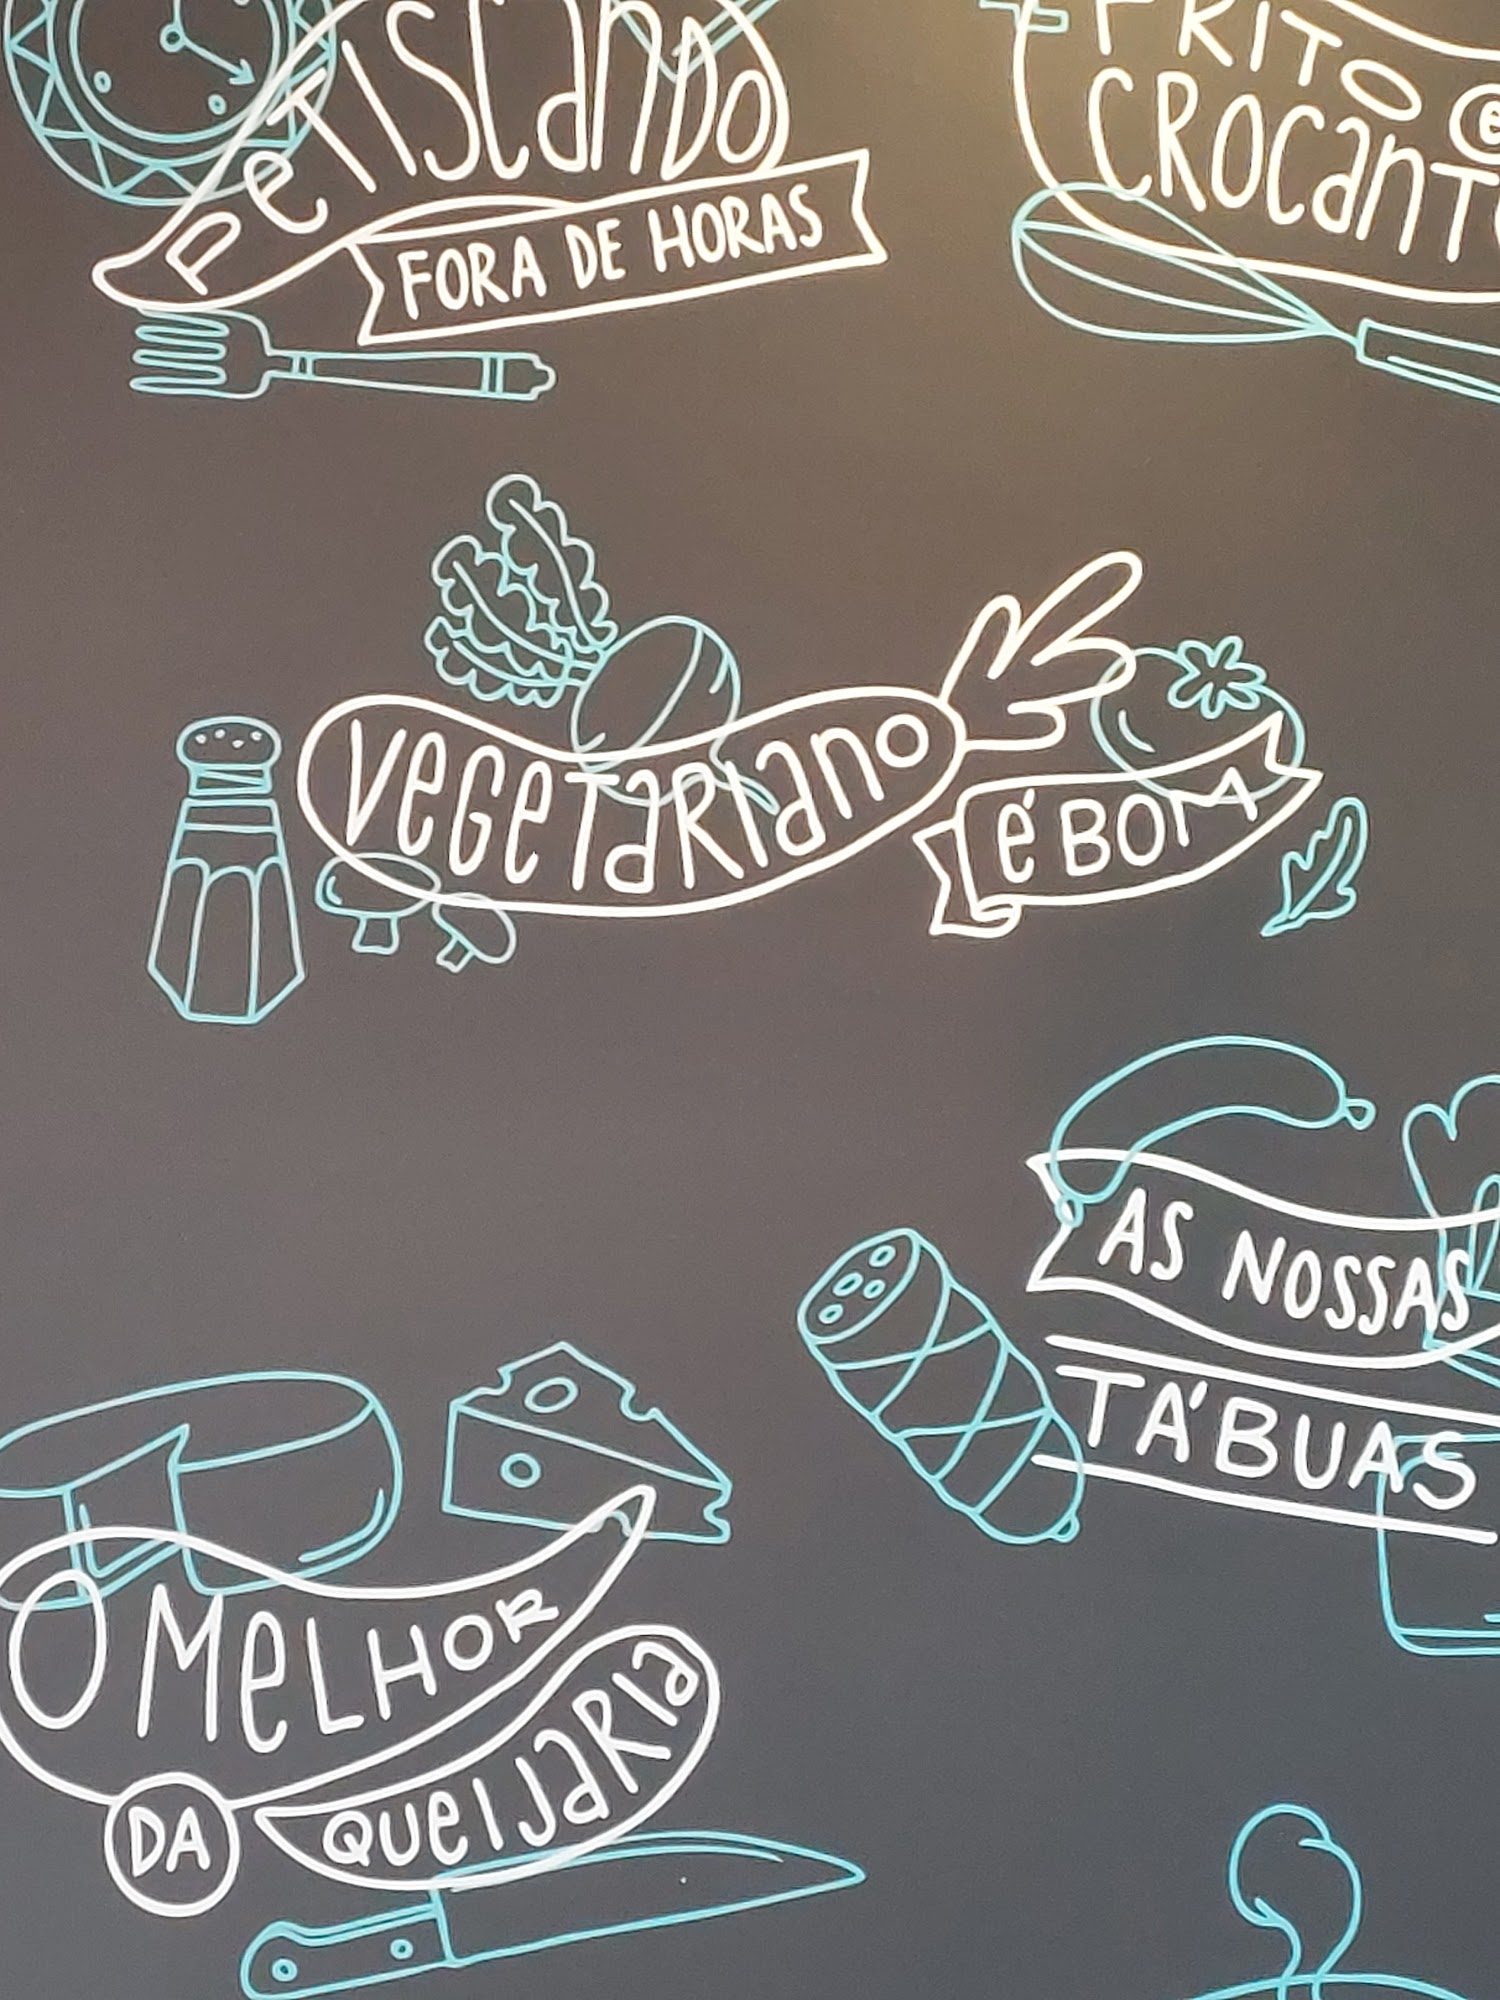 PETISCANDO
FORA DE HORAS
FRITO e
CROCANTE
VEGETARIANO
É BOM
AS NOSSAS
TÁBUAS
O MELHOR
DA QUEIJARIA